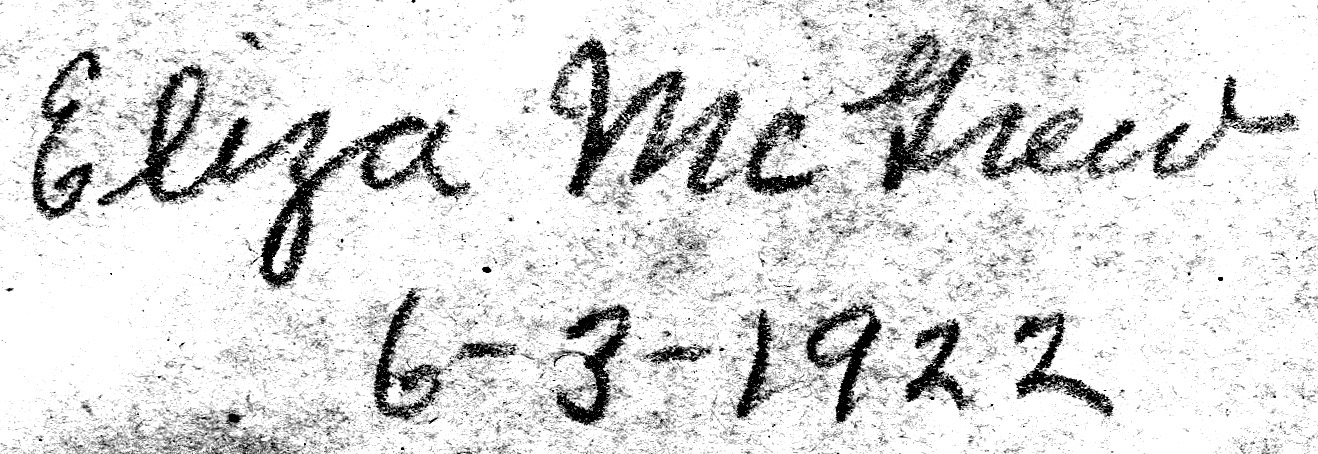 Eliza McGrew
6-3-1922